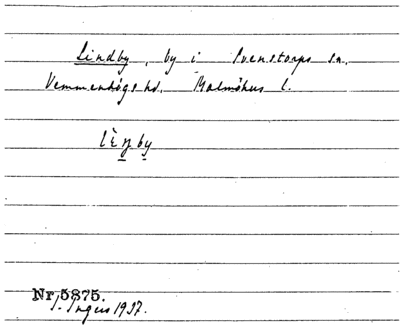 Lindby, by i Svenstorps sn.
Vemmenhögs hd. Malmöhus l.
by
Nr 5875.
I. Ingers 1937.